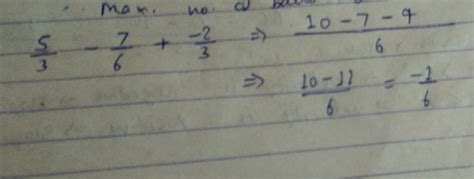 Max. no. of
5/3 - 7/6 + -2/3 ⇒ (10 - 7 - 4)/6
⇒ (10 - 11)/6 = -1/6